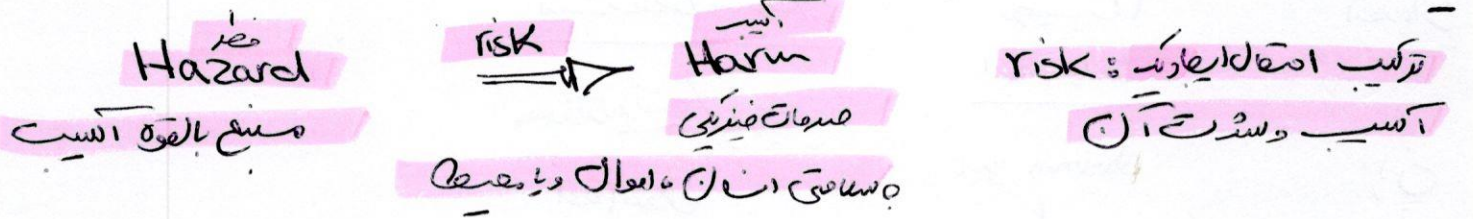 خطر
Hazard
منبع بالقوه آسیب
risk
آسیب
Harm
صدمات فیزیکی
به سلامتی انسان، اموال و یا محیط
risk : ترکیب احتمال ایجاد یک
آسیب و شدت آن